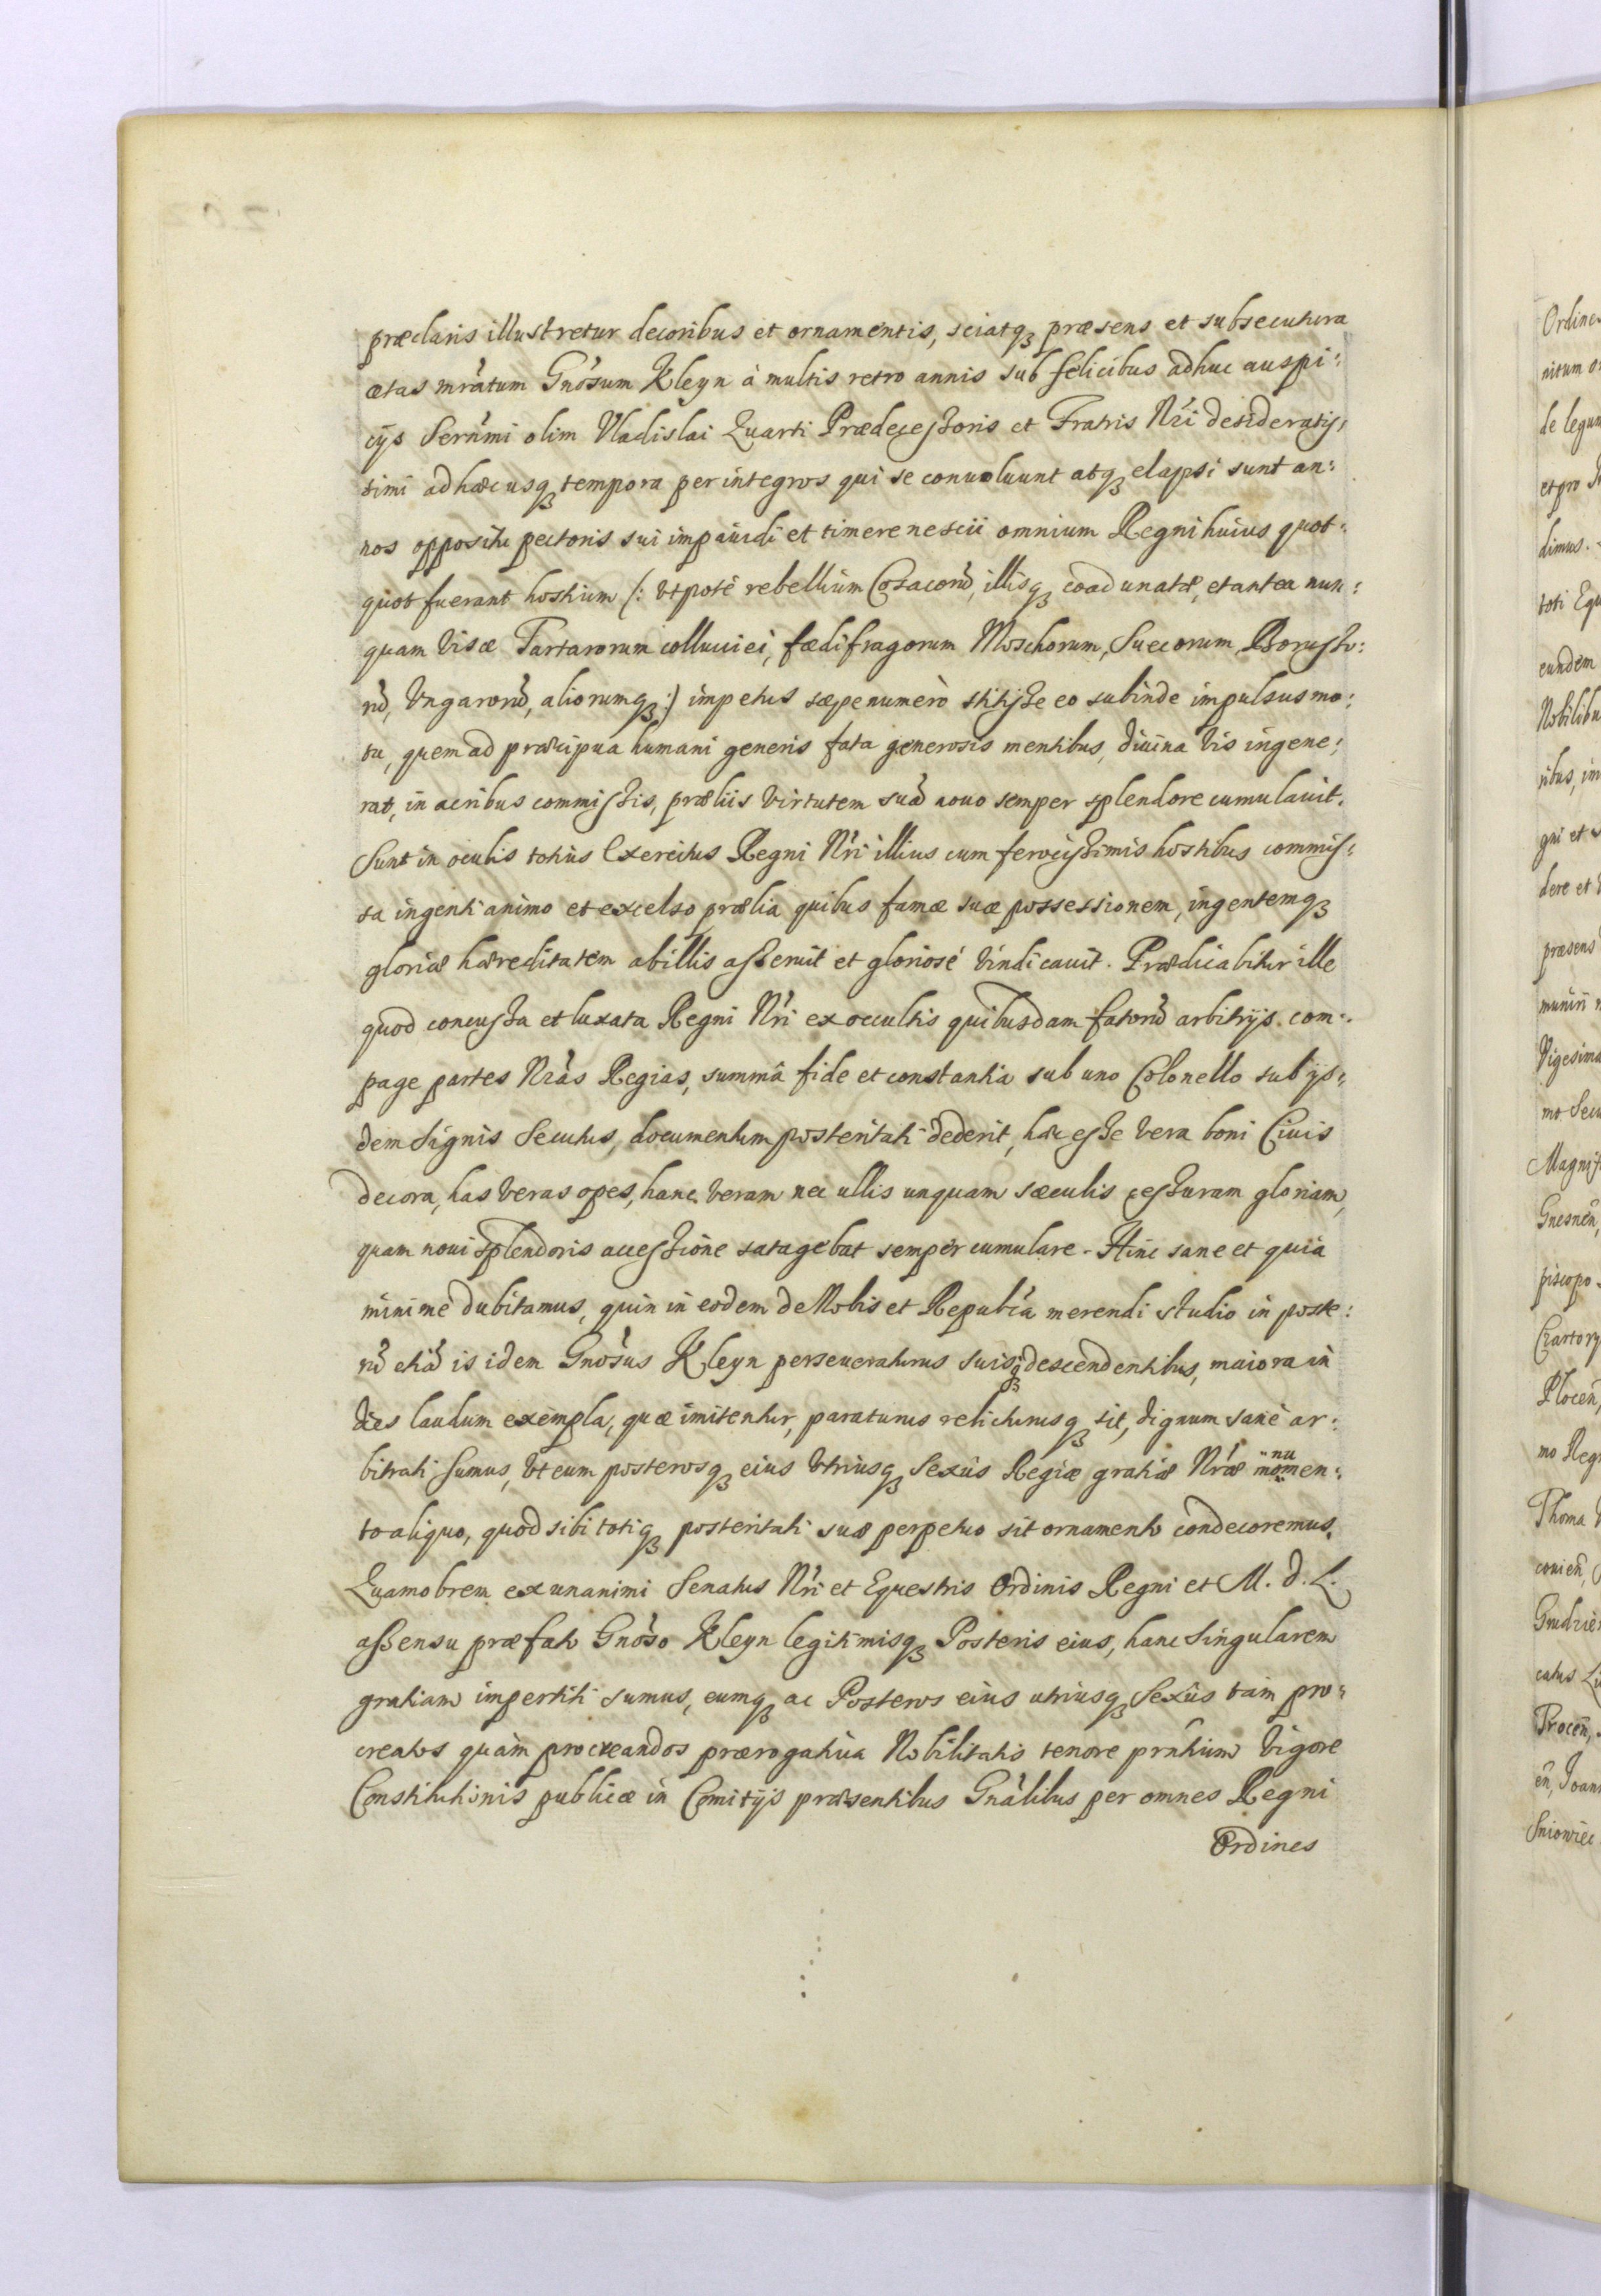 præclaris illustretur decoribus et ornamentis, sciatqꝫ præsens et subsecutura
ætas mrãtum Gnõsum Kleyn à multis retro annis sub felicibus adhuc auspi:
cijs Sernm̃i olim Vladislai Quarti Prædecessoris et Fratris Nr̃i desideratis,
simi ad hæc usqꝫ tempora per integros qui se conuoluunt atqꝫ elapsi sunt an:
nos oppositu pectoris sui impauidi et timere nescii omnium Regni huius quot:
quot fuerant hostium (: Vtpote rebellium Cosacorũ, illisqꝫ coadunatæ, et antea nun:
quam visæ Tartarorum colluuiei, fædifragorum Moschorum, Suecorum, Borusso:
rũ, Vngarorũ, aliorumqꝫ :) impetus sæpenumerò stitisse eo subinde impulsus mo:
tu, quem ad præcipua humani generis fata generosis mentibus, diuina vis ingene:
rat, in acribus commissis, præliis virtutem suã nouo semper splendore cumulauit.
Sunt in oculis totius Exercitus Regni Nr̃i illius cum ferocissimis hostibus commis:
sa ingenti animo et excelso prælia quibus famæ suæ possessionem, ingentemqꝫ
gloriæ hæreditatem ab illis asseruit et gloriosé vindicauit. Prædicabitur ille
quod concussa et luxata Regni Nr̃i ex occultis quibusdam fatorũ arbitrijs com:
page partes Nr̃as Regias, summâ fide et constantia sub uno Colonello sub ijs:
dem Signis Secutus, documentum posteritati dederit, hæc esse vera boni Ciuis
decora, has veras opes, hanc veram nec ullis unquam sæculis cessuram gloriam,
quam noui splendoris accessione satagebat semper cumulare. Hinc sane et quia
minimé dubitamus, quin in eodem de Nobis et Republ̃a merendi studio in poste:
rũ etiã is idem Gnõsus Kleyn perseueraturus suisqꝫ descendentibus, maiora in
dies laudum exempla, quæ imitentur, paraturus relicturusqꝫ sit, dignum sané ar:
bitrati sumus, Vt eum posterosqꝫ eius Vtriusqꝫ Sexûs Regiæ gratiæ Nr̃æ momen:
nu
to aliquo, quod sibi totiqꝫ posteritati suæ perpetuo sit ornamento condecoremus.
Quamobrem ex unanimi Senatus Nr̃i et Equestris Ordinis Regni et M. D. L.
assensu præfato Gnõso Kleyn legitimisqꝫ Posteris eius, hanc Singularem
gratiam impertiti sumus, eumqꝫ ac Posteros eius utriusqꝫ Sexûs tam pro:
creatos quàm procreandos prærogatiua Nobilitatis tenore prñtium Vigore
Constitutionis publicæ in Comitijs præsentibus Gnãlibus per omnes Regni
Ordines
Ordines
nitum
de legum
et pro
dimus.
toti Equ
eundem
Nobilibu
ribus, im
gni et
dere et
præsens
muniri
Vigesima
mo Secu
Magnif
Gnesnẽn,
piscopo
Czartory
Plocen,
mo Reg
Thoma
couieñ,
Grudzie
catus
Trocen,
eñ, Joan
Sniowiec